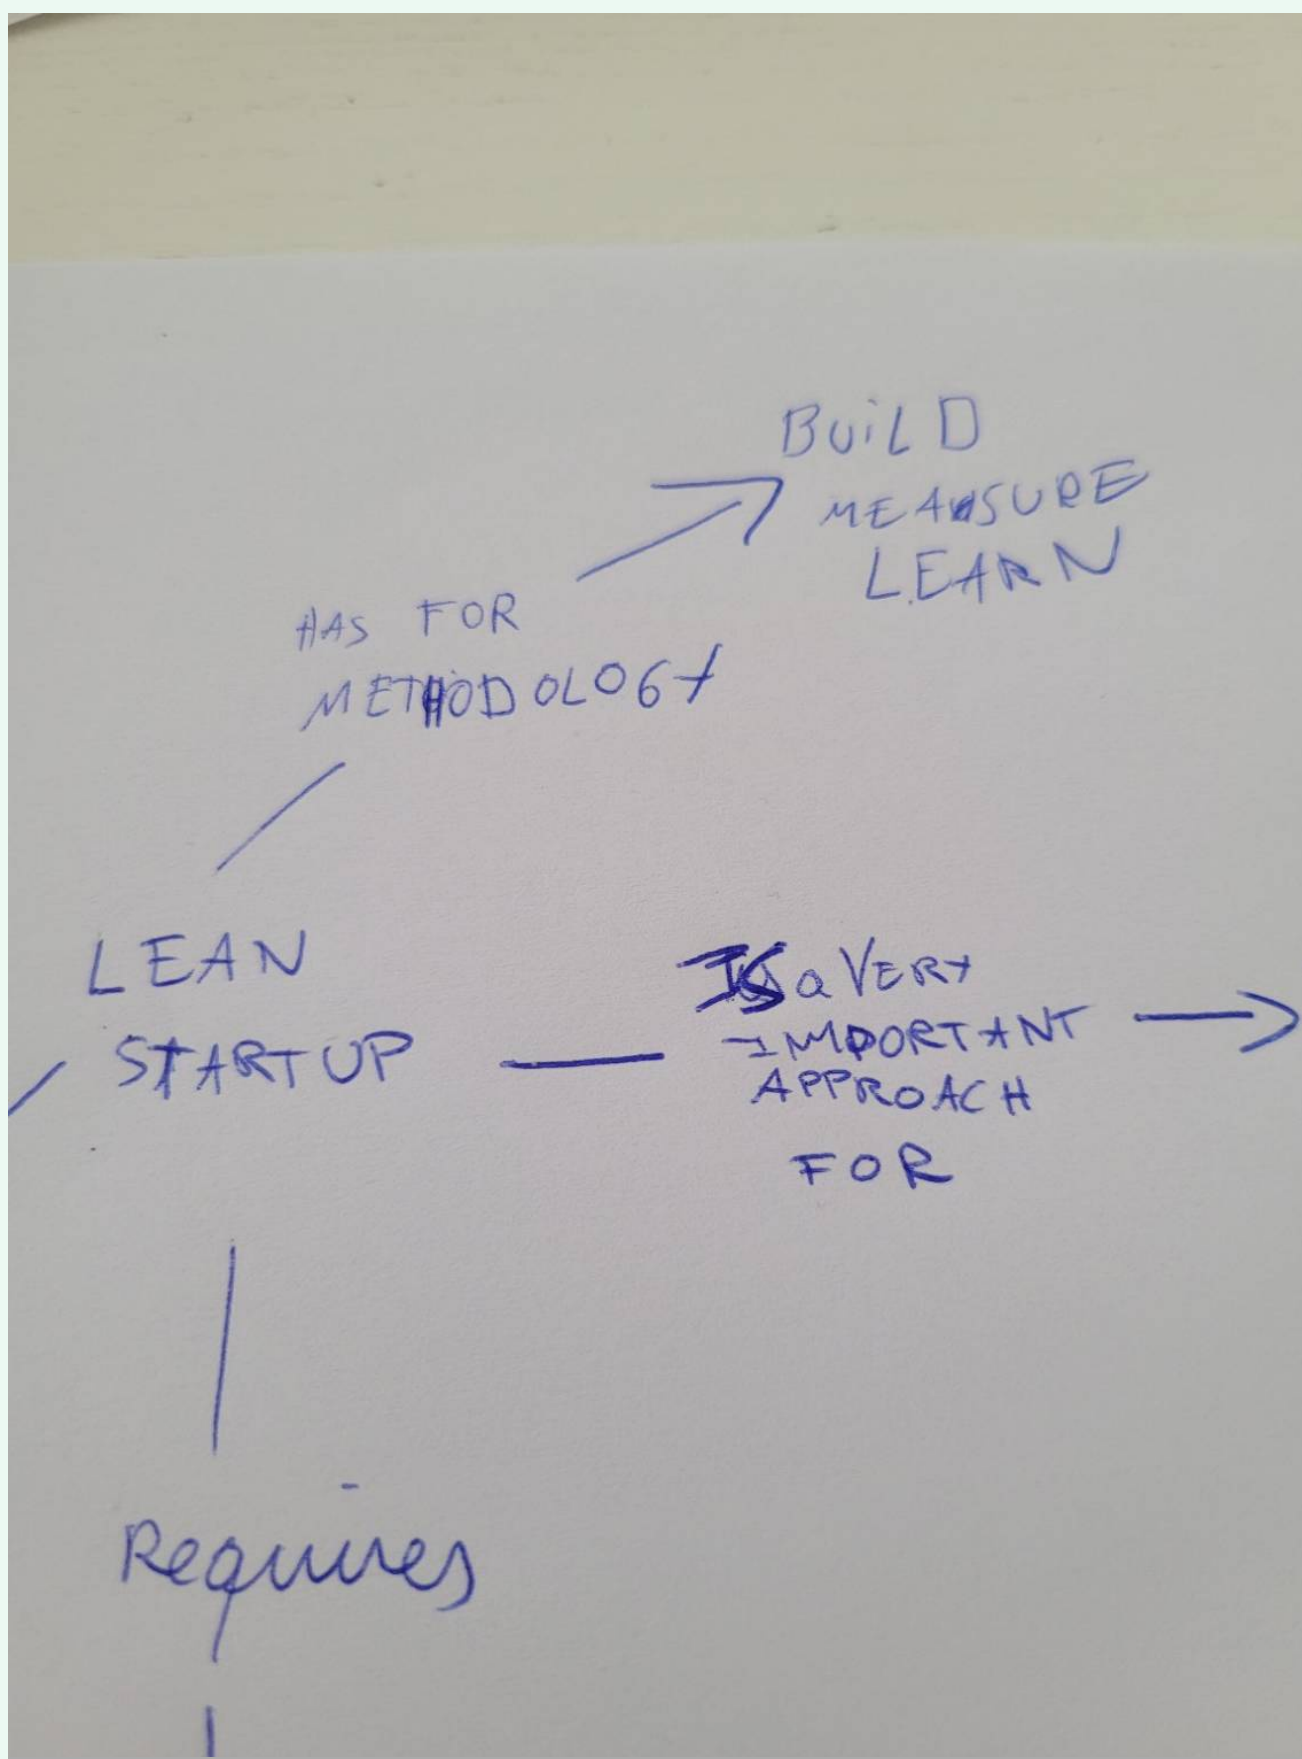 BUILD
MEASURE
LEARN
HAS FOR
METHODOLOGY
LEAN
STARTUP
IS a VERY
IMPORTANT
APPROACH
FOR
Requires